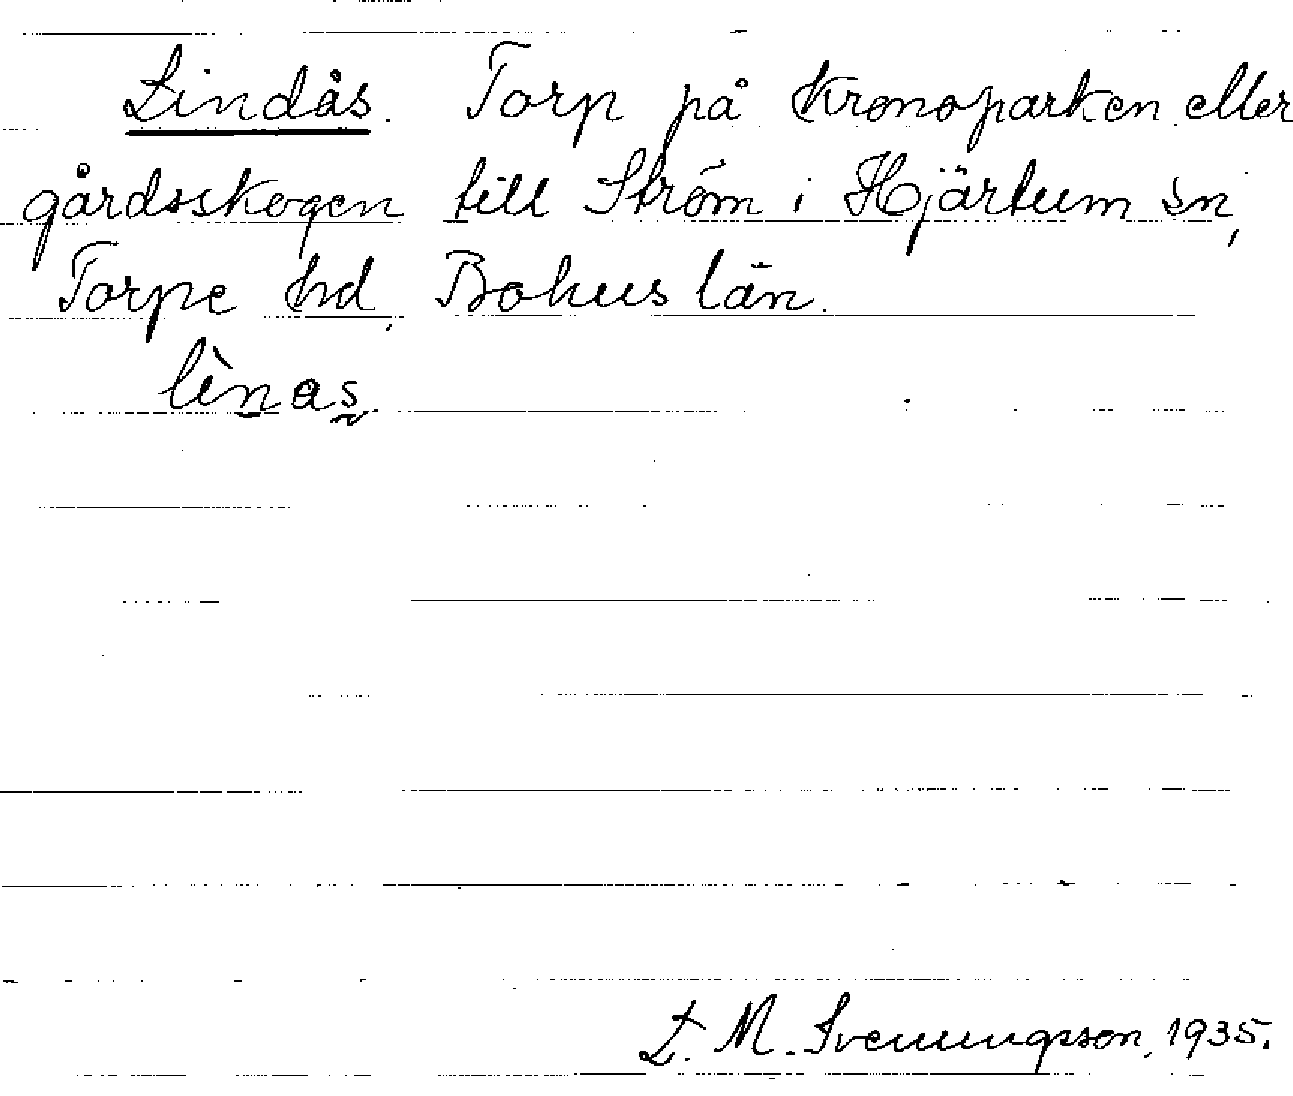 Lindås. Torp på Kronoparken eller
gårdsskogen till Ström i Hjärtum sn,
Torpe hd, Bohus län.
lìnas
L. M. Svenungsson, 1935.